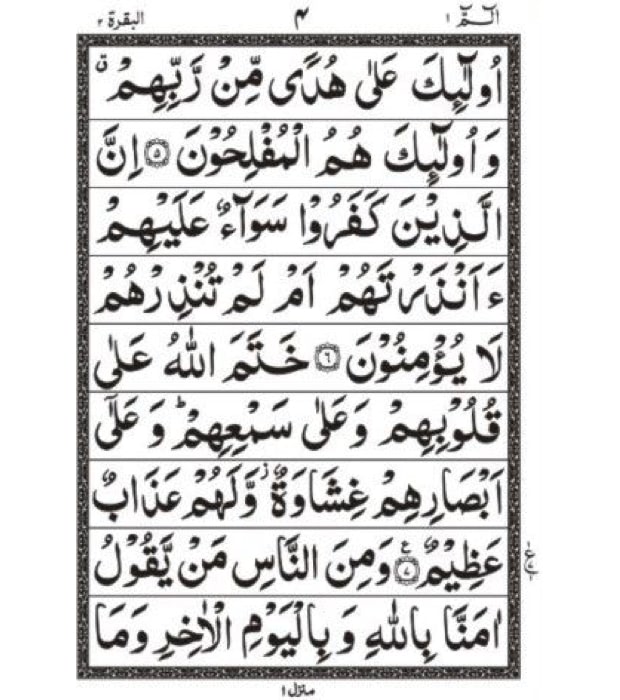 الٓمّٓ ١ ٤ البقرة ٢
اُولٰٓئِكَ عَلٰى هُدًى مِّنْ رَّبِّهِمْ ۙ ق
وَ اُولٰٓئِكَ هُمُ الْمُفْلِحُوْنَ ﴿٥﴾ اِنَّ
الَّذِيْنَ كَفَرُوْا سَوَآءٌ عَلَيْهِمْ
ءَاَنْذَرْتَهُمْ اَمْ لَمْ تُنْذِرْهُمْ
لَا يُؤْمِنُوْنَ ﴿٦﴾ خَتَمَ اللّٰهُ عَلٰى
قُلُوْبِهِمْ وَ عَلٰى سَمْعِهِمْ ؕ وَ عَلٰٓى
اَبْصَارِهِمْ غِشَاوَةٌ ز وَّلَهُمْ عَذَابٌ
عَظِيْمٌ ﴿٧﴾ ع وَمِنَ النَّاسِ مَنْ يَّقُوْلُ
اٰمَنَّا بِاللّٰهِ وَ بِالْيَوْمِ الْاٰخِرِ وَمَا
منزل ١